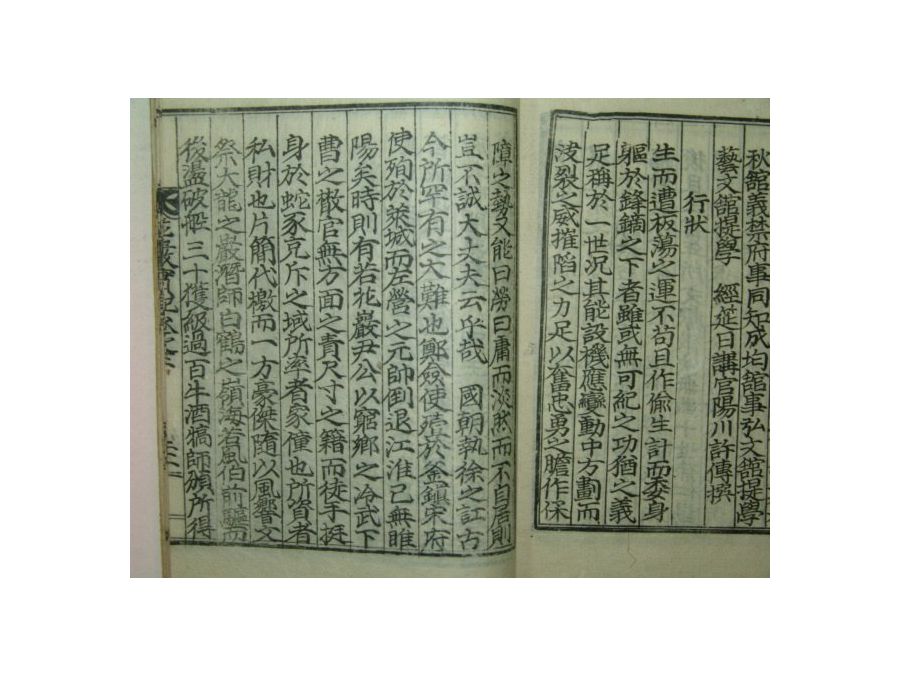 秋舘義禁府事同知成均舘事弘文舘提學
藝文舘提學 經莚日講官陽川許傳撰
行狀
生而遭板蕩之運不苟且作偷生計而委身
軀於鋒鏑之下者雖或無可紀之功猶之義
足稱於一世況其能設機應變動中方劃而
浚裂之威摧陷之力足以奮忠勇之膽作保
障之勢又能曰勞曰庸而淡然而不自居則
豈不誠大丈夫云乎哉 國朝執徐之訌古
今所罕有之大難也鄭僉使殪於釜鎭宋府
使殉於萊城而左營之元帥倒退江淮已無睢
陽矣時則有若花巖尹公以窮鄉之冷武下
曹之散官無方面之責尺寸之籍而徒手挺
身於蛇豕充斥之域所率者家僮也所資者
私財也片簡代檄而一方豪傑隨以風響又
祭大龍之巖潛師白鶴之嶺海若風伯前驅而
後盪破艦三十獲級過百牛酒犒師頒所得
花巖實記卷之二